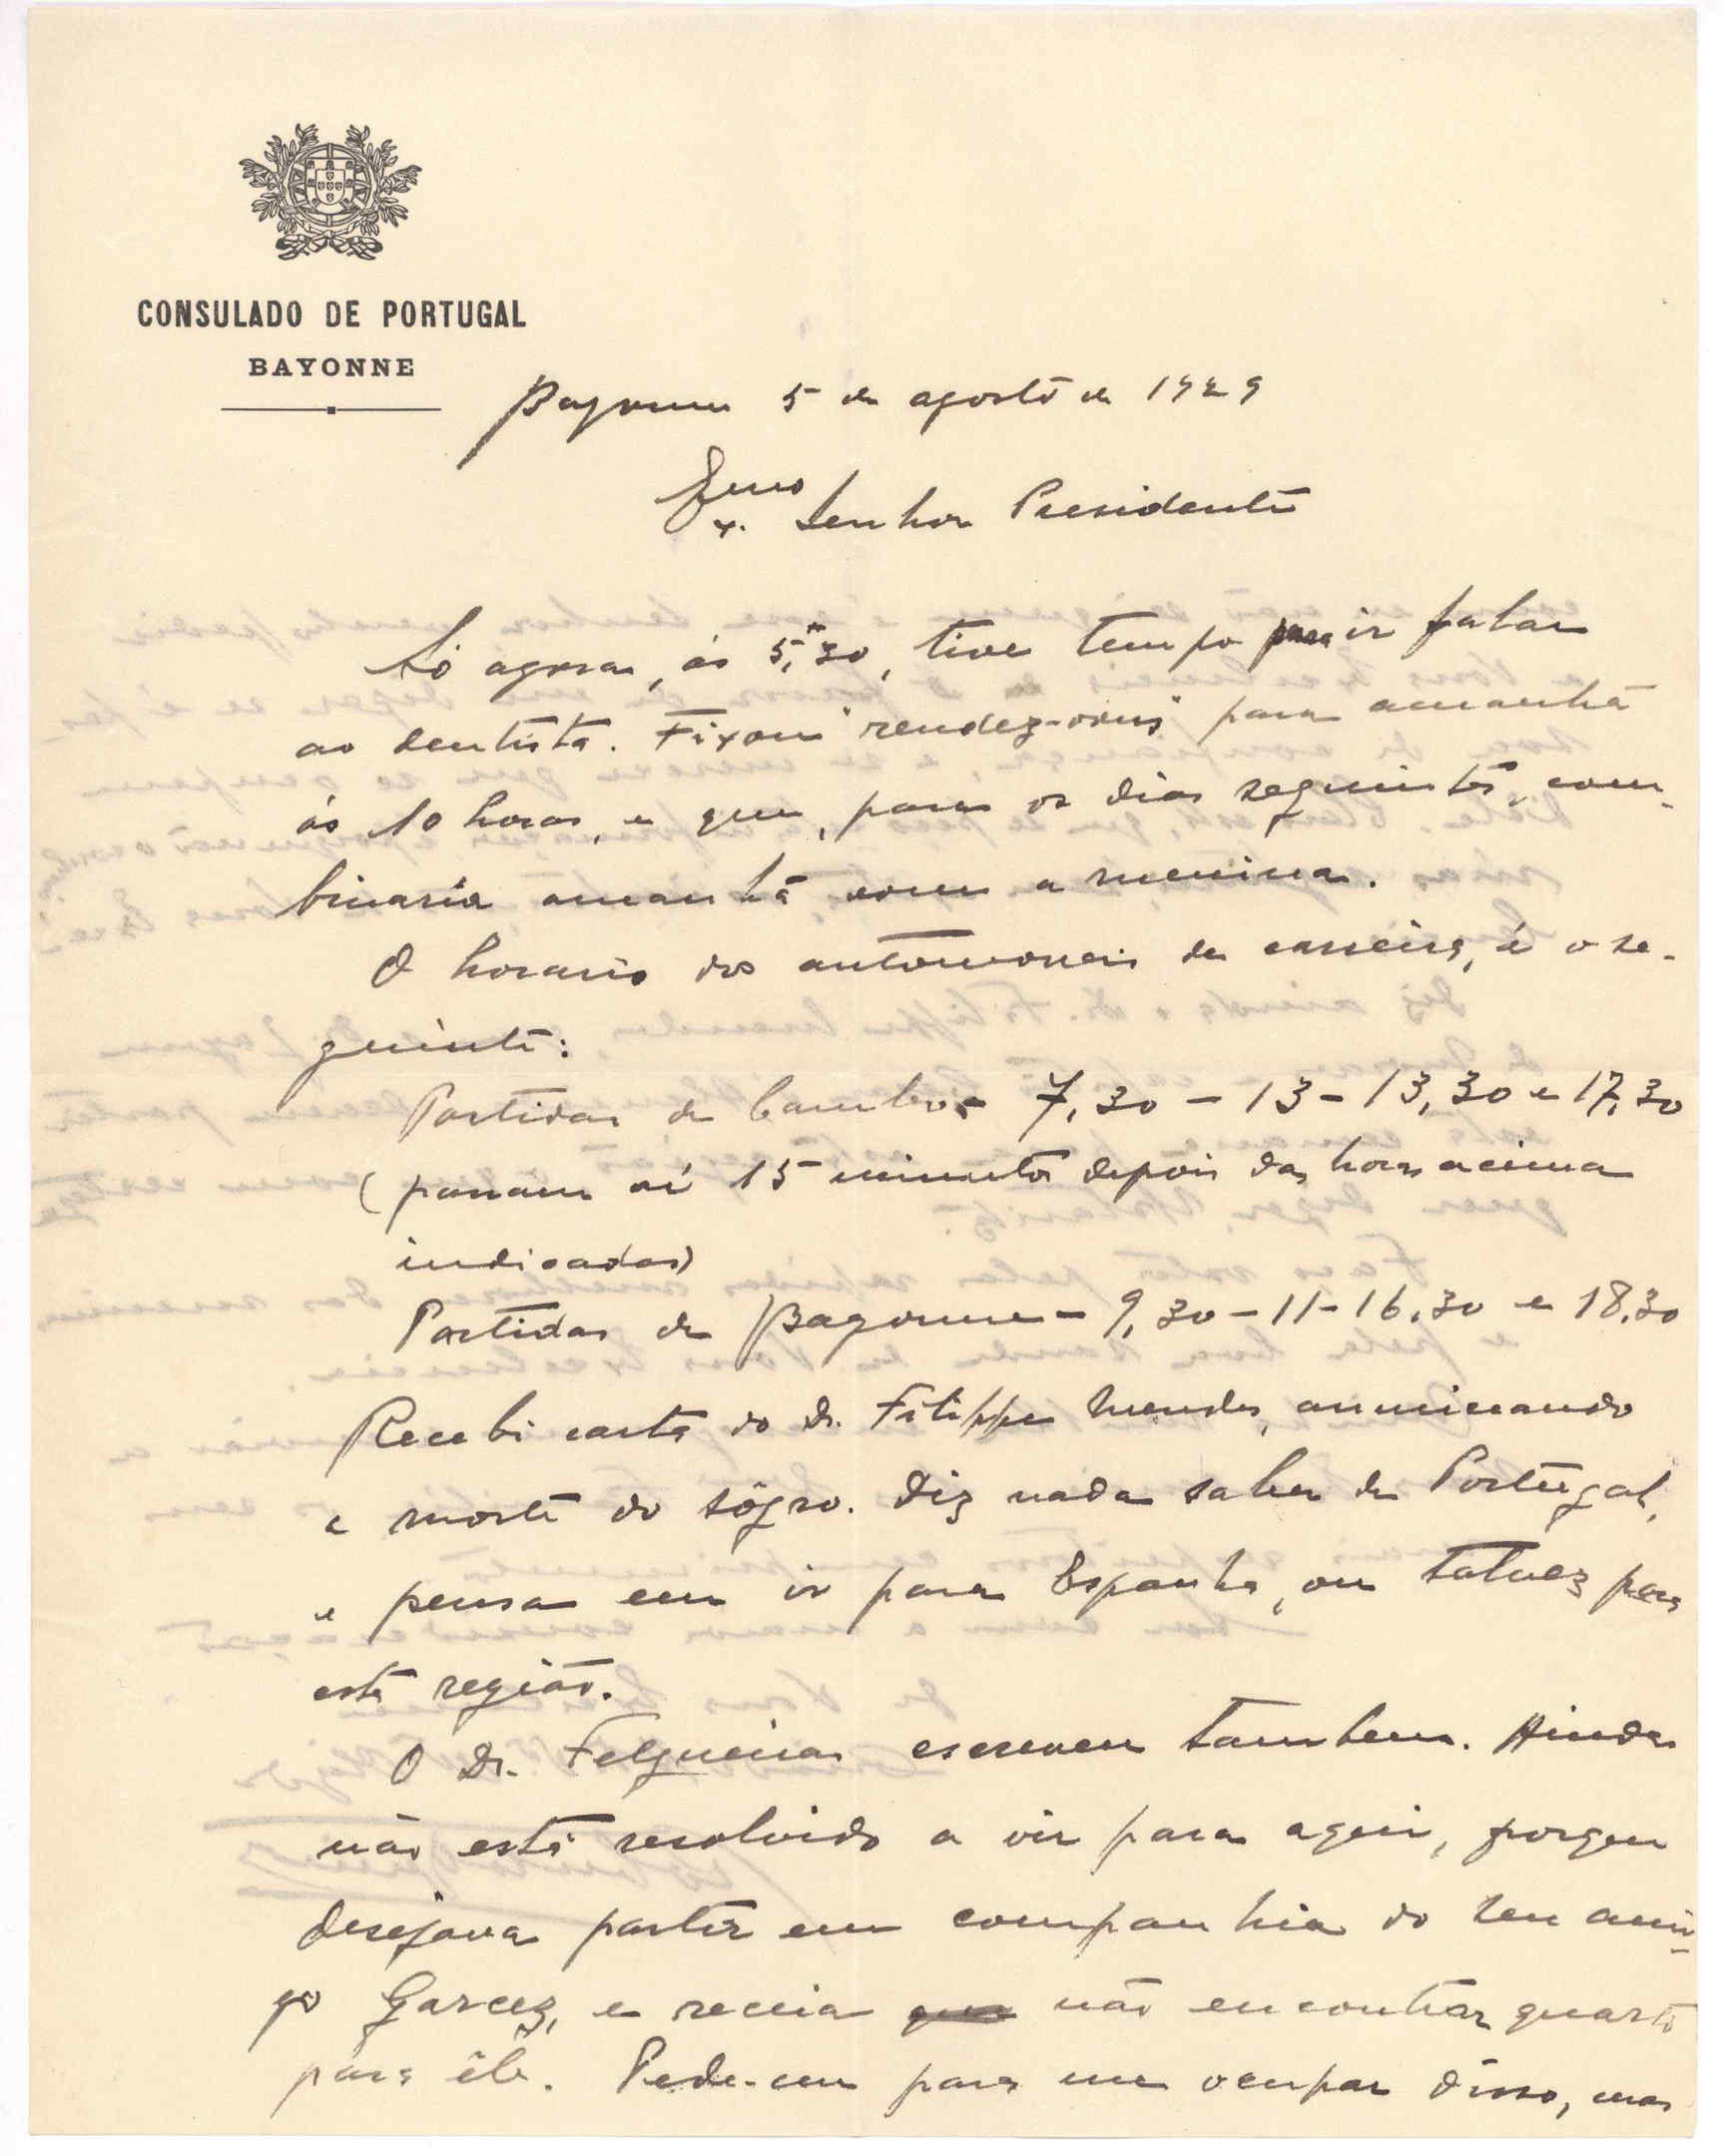 CONSULADO DE PORTUGAL
BAYONNE
Bayonne 5 de agosto de 1929
Exmo Senhor Presidente
Só agora, ás 5,h30, tive tempo para ir falar
ao dentista. Fixou rendez-vous para amanhã
ás 10 horas, e que, para os dias seguintes, com-
binaria amanhã com a menina.
O horario dos automoveis da carreira, é o se-
guinte:
Partidas de Cambo - 7,30 - 13 - 13,30 e 17,30
(passam aí 15 minutos depois das horas acima
indicadas)
Partidas de Bayonne - 9,30 - 11 - 16,30 e 18,30
Recebi carta do Dr. Filippe Mendes, anunciando
a morte do sôgro. Diz nada saber de Portugal,
e pensa em ir para Espanha, ou talvez para
esta região.
O Dr. Felgueiras escreveu tambem. Ainda
não está resolvido a vir para aqui, porque
desejava partir em companhia do seu ami-
go Garcez, e receia que não encontrar quarto
para êle. Pede-me para me ocupar disso, mas